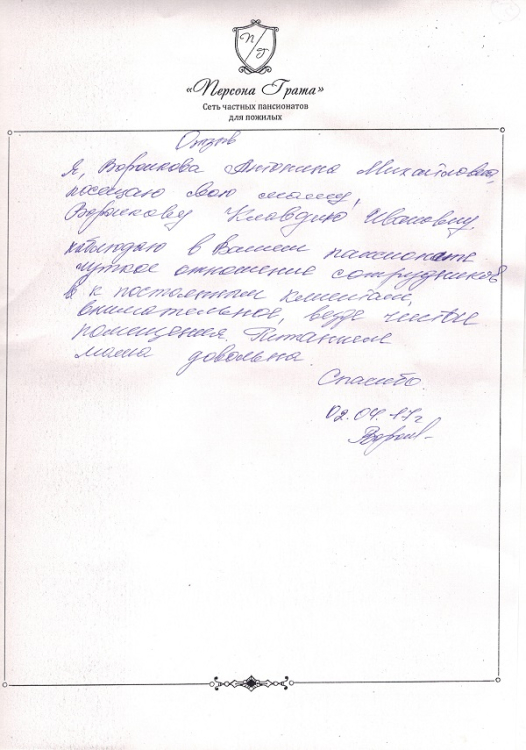 П/Г
«Персона Грата»
Сеть частных пансионатов
для пожилых
Отзыв
Я, Воронкова Антонина Михайловна,
посещаю свою маму,
Воронкову Клавдию Ивановну
наблюдаю в Вашем пансионате
чуткое отношение сотрудников
к постоянным клиентам,
внимательное, везде чистые
помещения. Питанием
мама довольна.
Спасибо.
02.04.17г